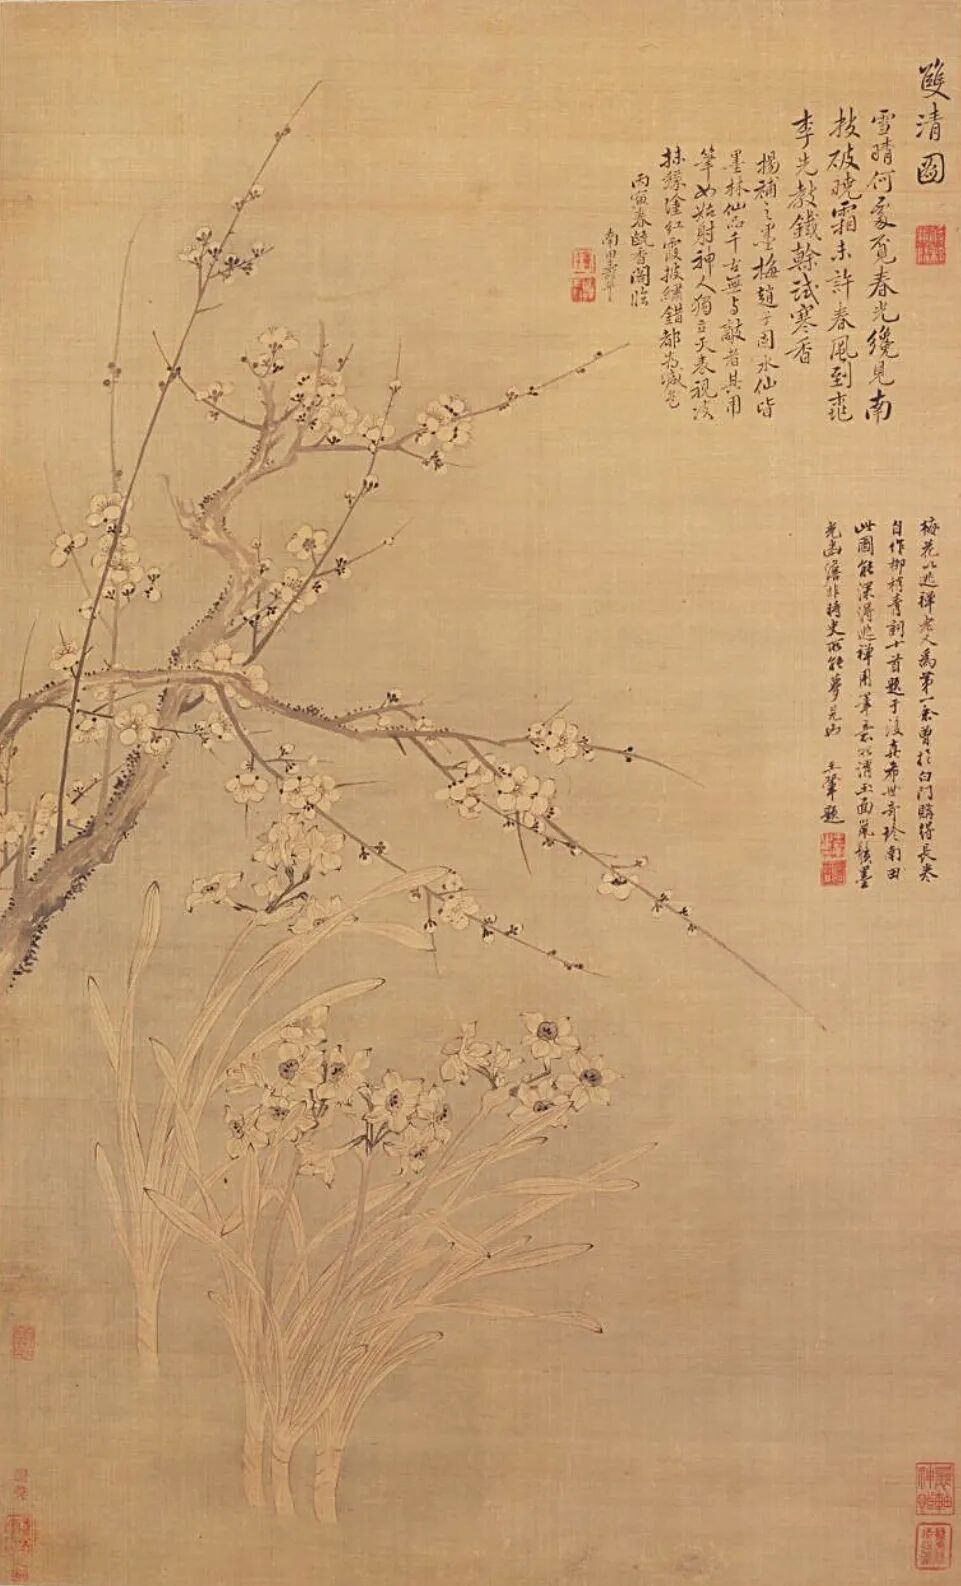 雙清圖
雪晴何處覓春光纔見南
枝破曉霜未許春風到桃
李先教鐵榦試寒香
揚補之墨梅趙子固水仙皆
墨林仙品千古無与敵者其用
筆如姑射神人獨立天表視
抹綠塗紅霞披繡錯都為減色
丙寅春甌香閣臨
南田壽平
梅花以逃禪老人為第一余曾於白門購得長卷
自作柳梢青詞十首題于後真希世奇珍南田
此圖能深得逃禪用筆意以清玉面鼠鬚墨
光幽澹非時史所能夢見也 王翬題